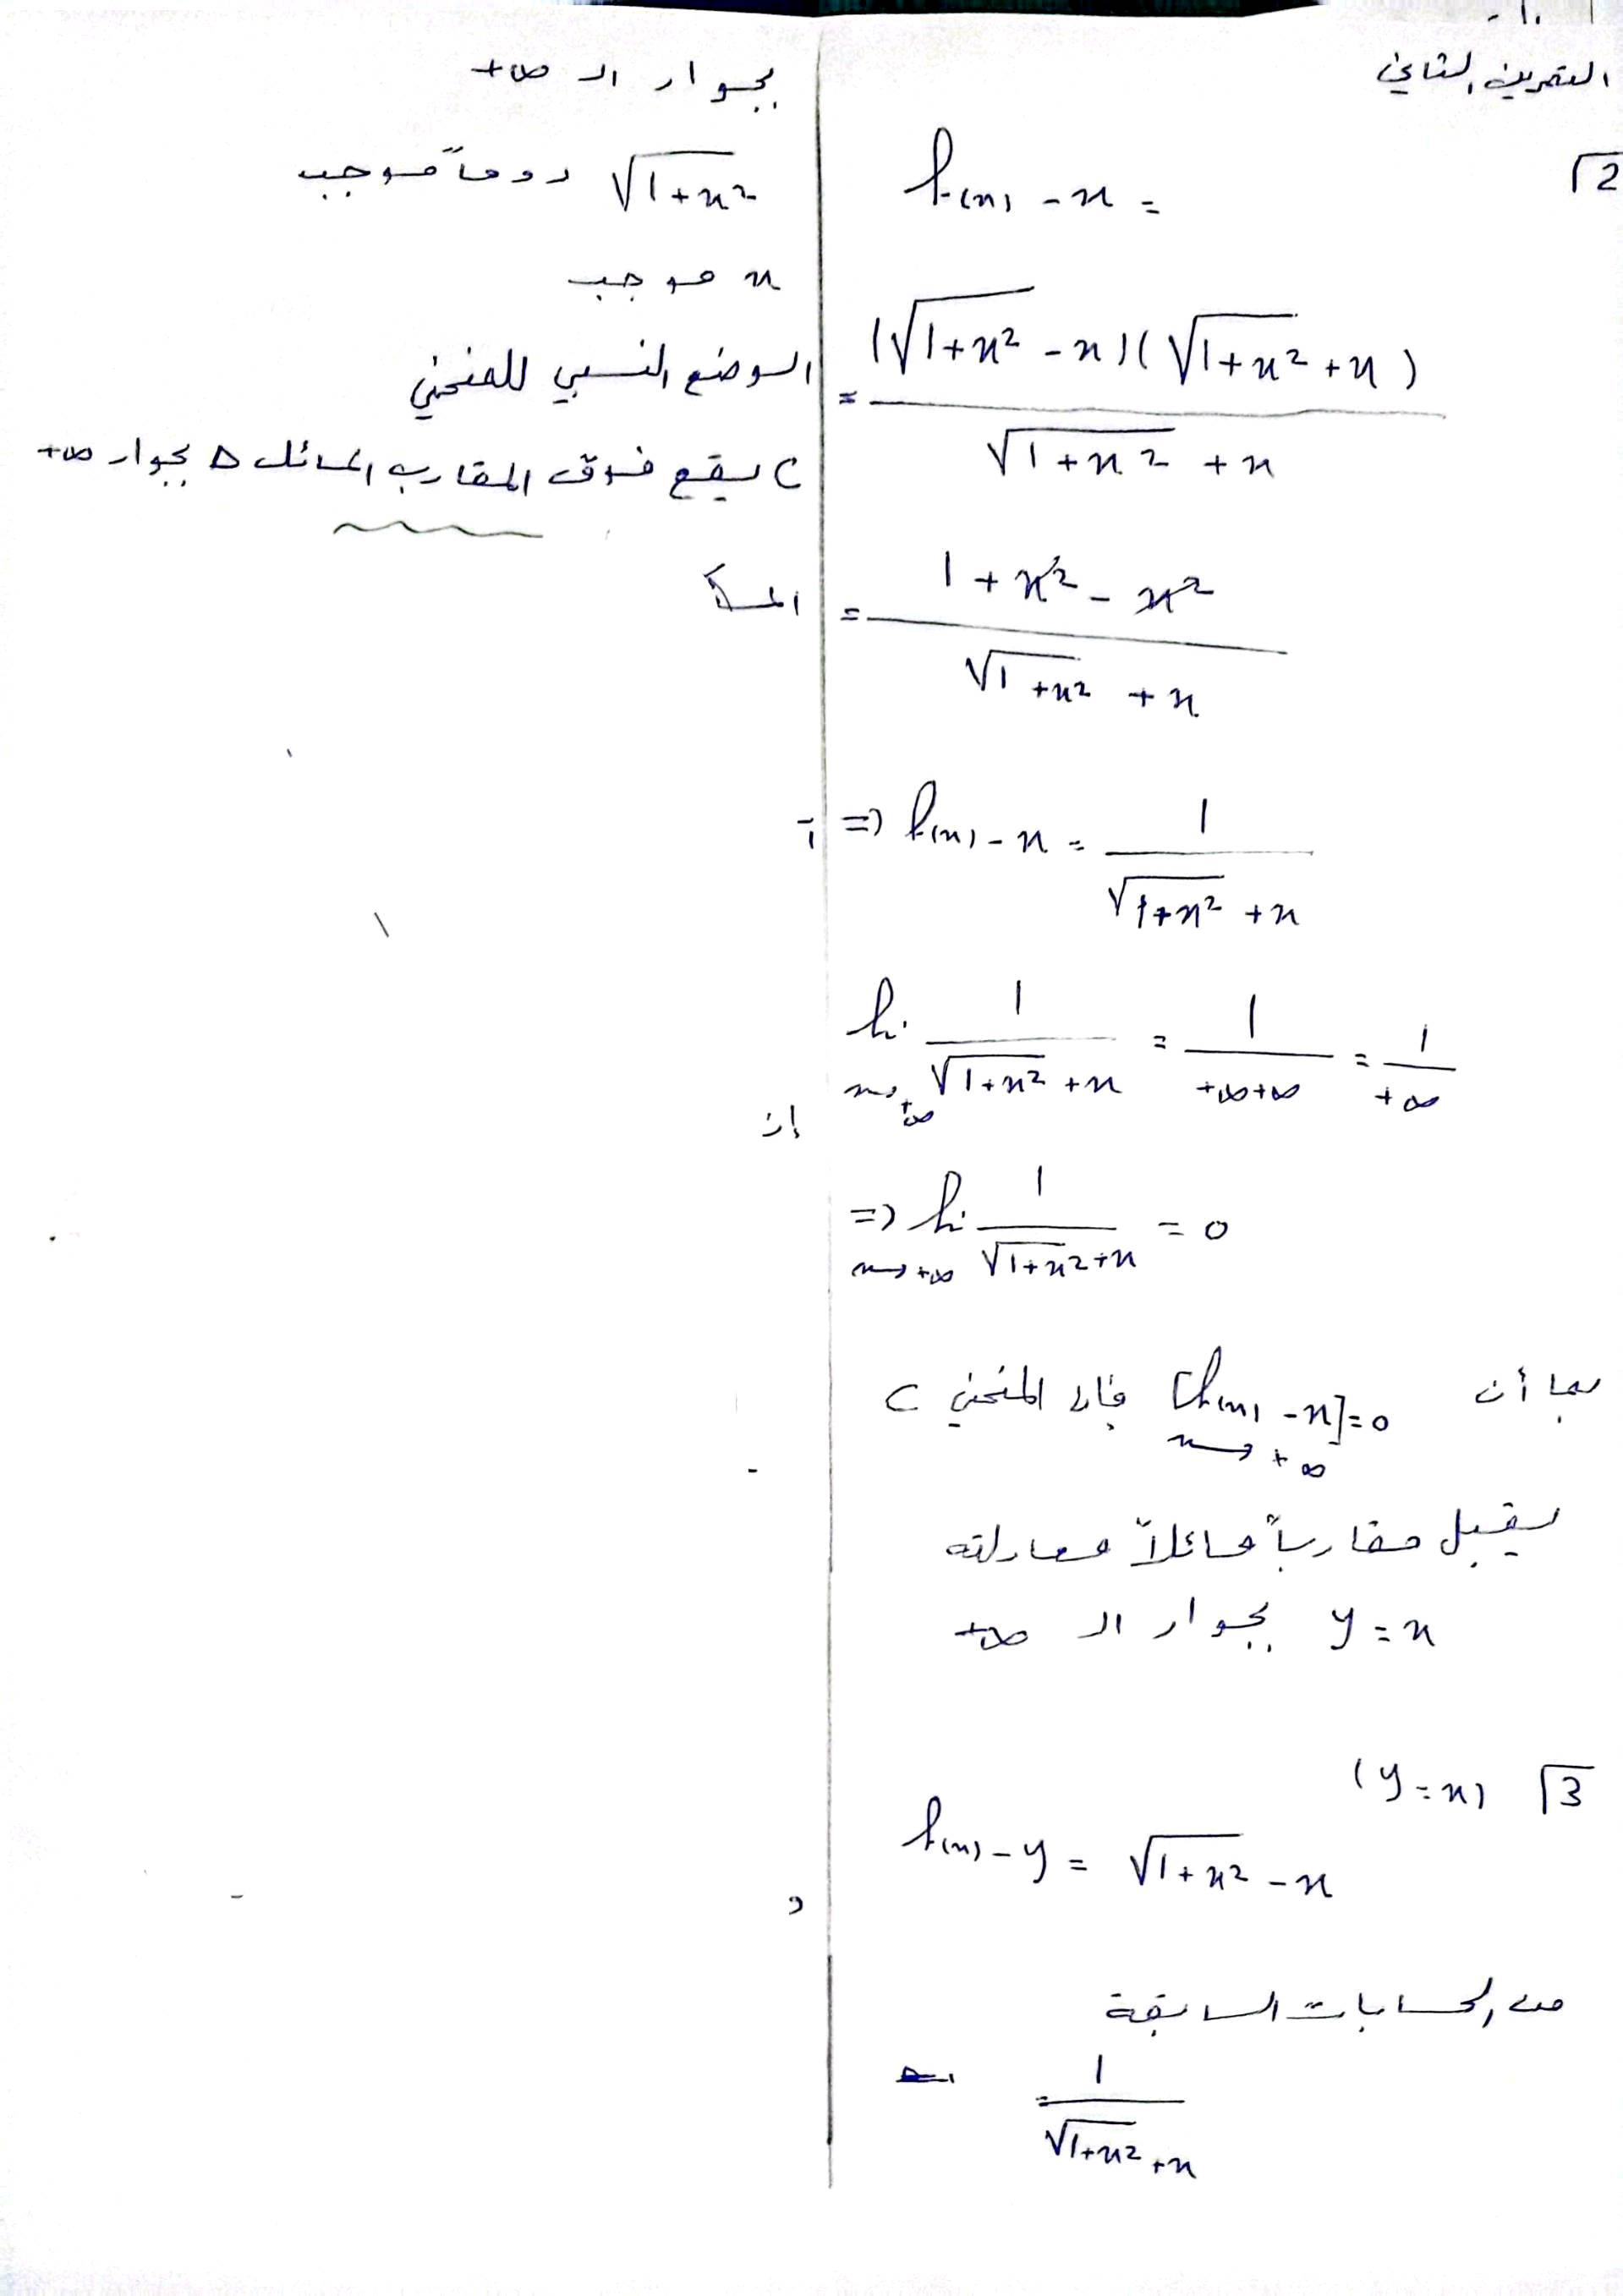 التمرين الثاني
2
f(x) - x =
= (√(1+x²) - x)(√(1+x²) + x) / (√(1+x²) + x)
= (1 + x² - x²) / (√(1+x²) + x)
=> f(x) - x = 1 / (√(1+x²) + x)
lim x→+∞ 1 / (√(1+x²) + x) = 1 / (+∞+∞) = 1 / +∞
=> lim x→+∞ 1 / (√(1+x²) + x) = 0
بما أن [f(x) - x] = 0 x→+∞ فإن المنحني C
يقبل مقارباً مائلاً معادلته
y = x بجوار الـ +∞
3 (y = x)
f(x) - y = √(1+x²) - x
من الحسابات السابقة
= 1 / (√(1+x²) + x)
بجوار الـ +∞
√(1+x²) دوماً موجب
x موجب
الوضع النسبي للمنحني
C يقع فوق المقارب المائل Δ بجوار +∞